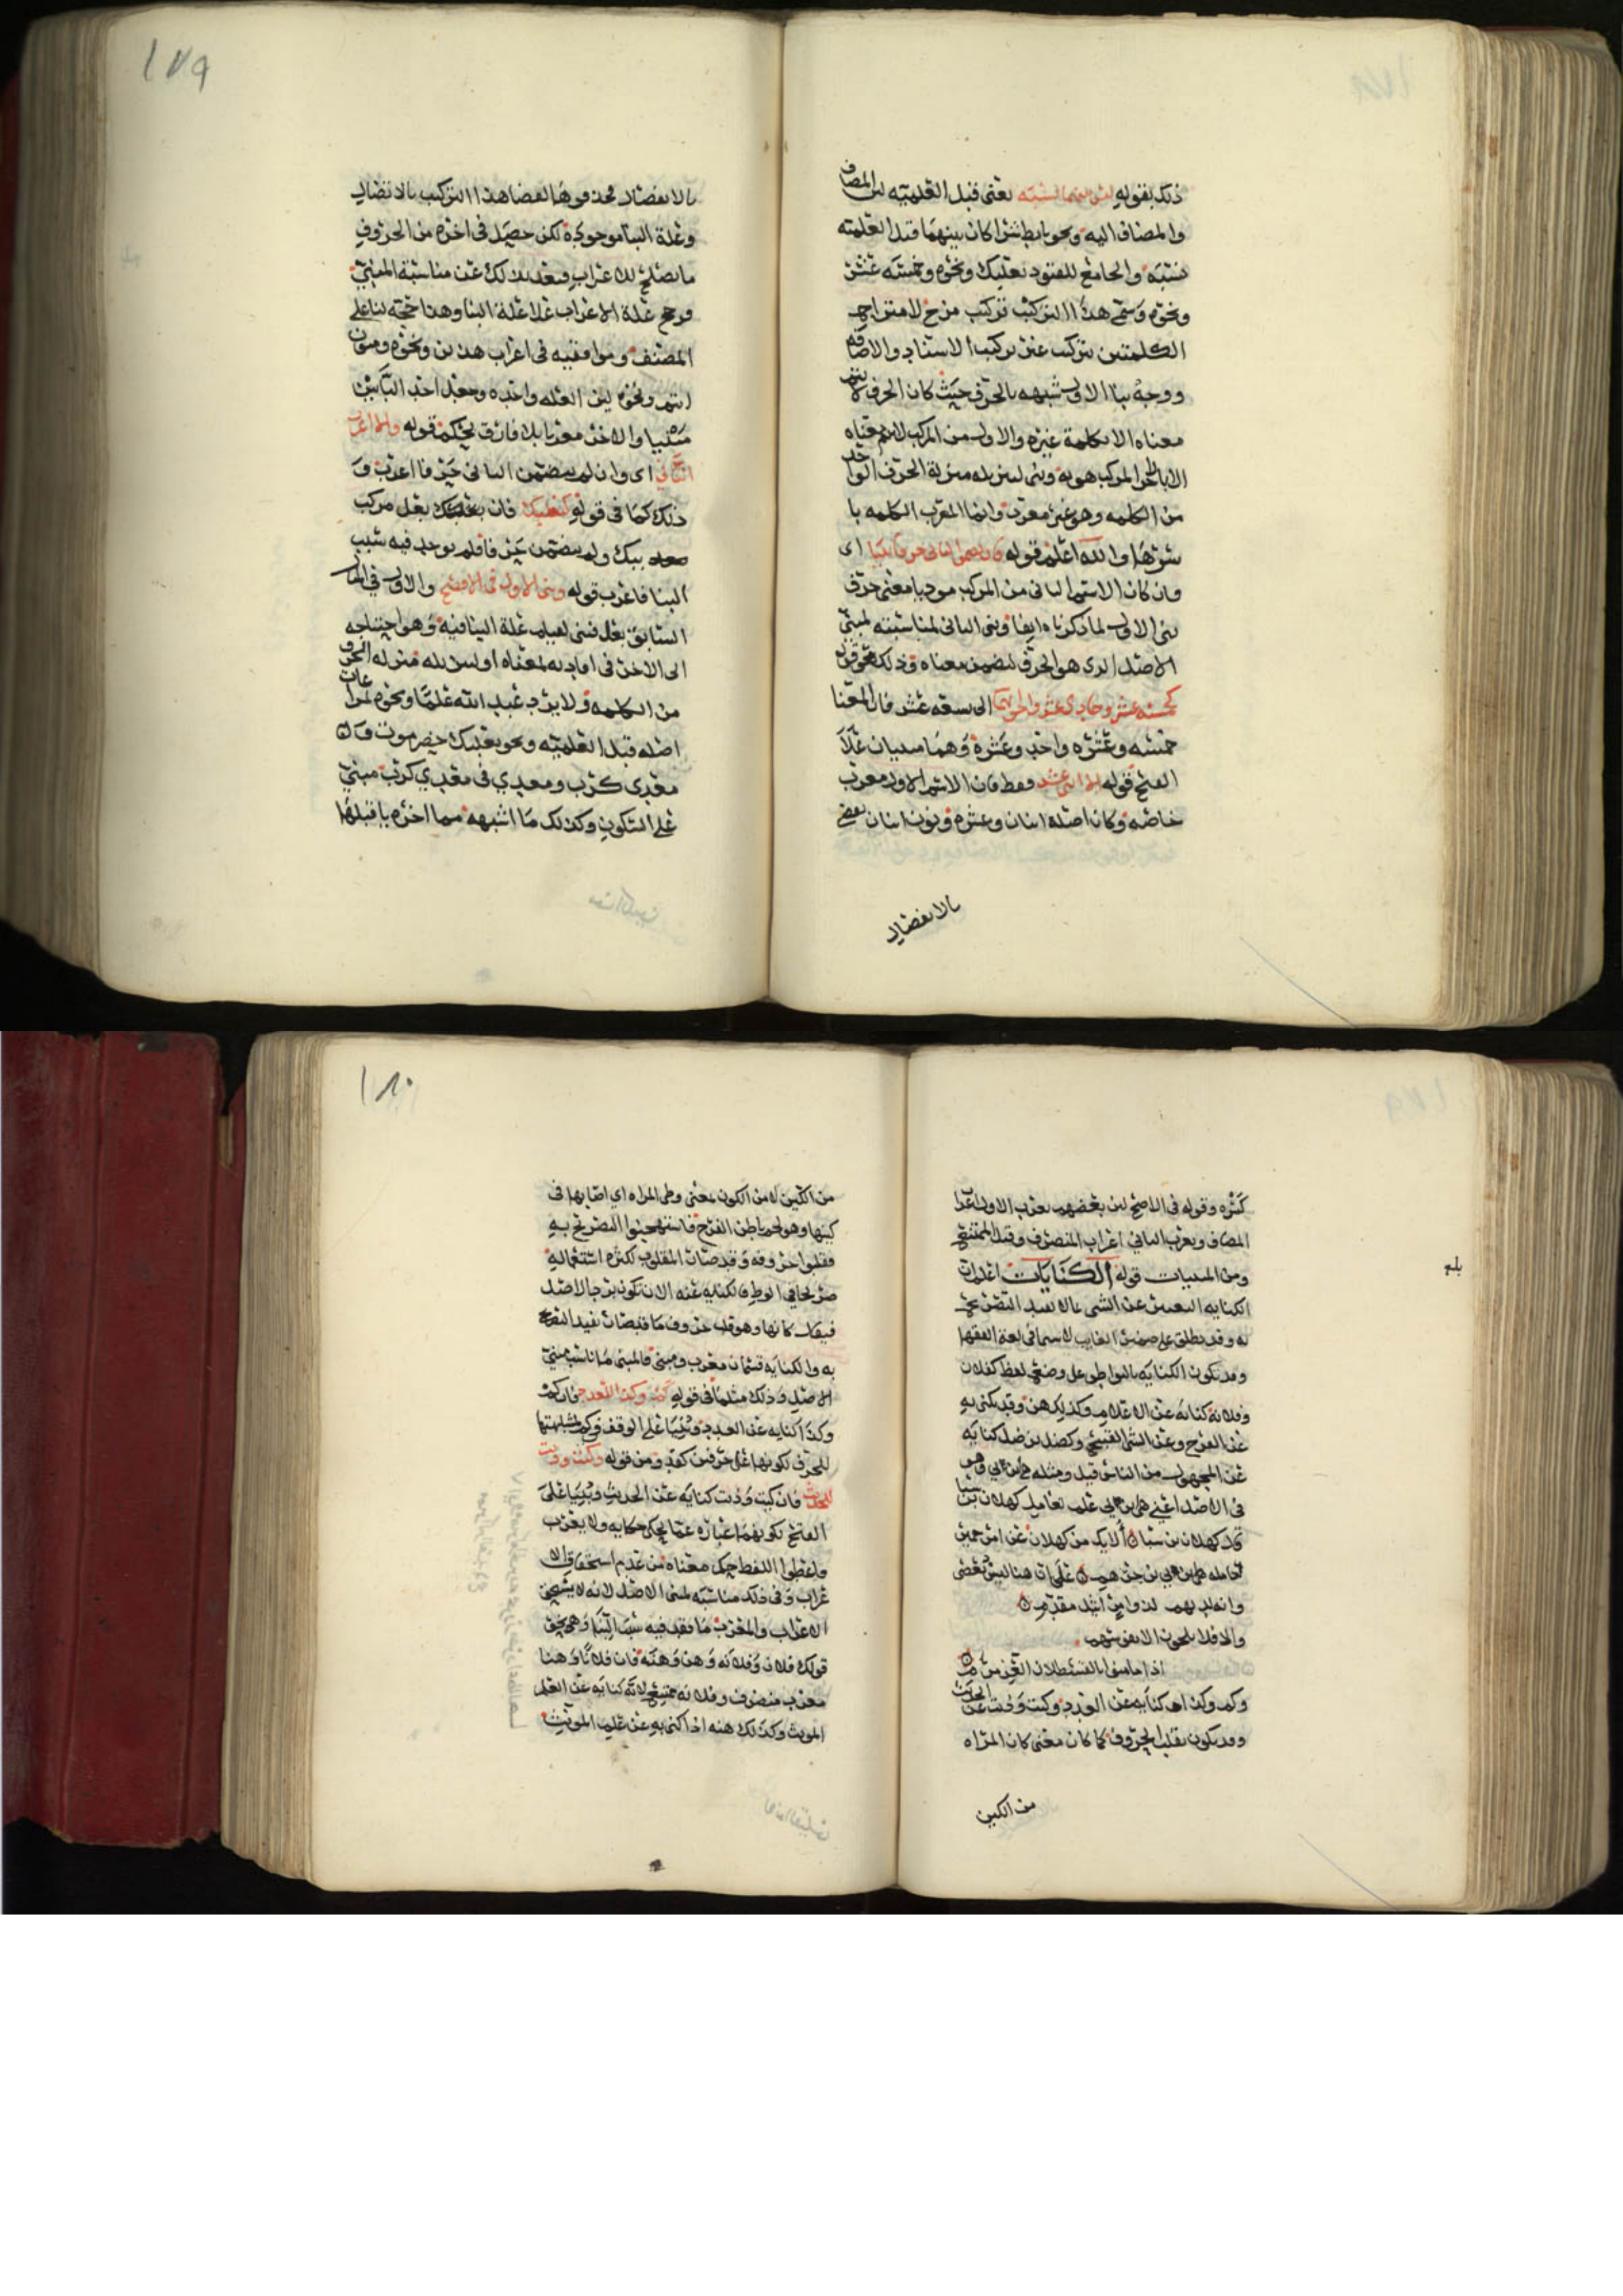 ذلك بقوله ليس بينهما نسبة يعنى قبل العلمية لان المضاف
والمضاف اليه ونحو تابط شرا كان بينهما قبل العلمية
نسبة والجامع للقيود بعلبك ونحوه وخمسة عشر
ونحوه وسمى هذا التركيب تركيب مزج لامتزاج
الكلمتين بتركيب غير تركيب الاسناد والاضافة
ووجه بنا الاول شبهه بالحرف حيث كان الحرف لا يتم
معناه الا بكلمة غيره والاول من المركب لا يتم معناه
الا بالجزء المركب هو به وبنى لتنزيله منزلة الحرف الواحد
من الكلمه وهو غير معرب وانما المعرب الكلمه با
سرها والله اعلم قوله فان تضمن الثانى حرفا بنيا اى
فان كان الاسم الثانى من المركب موديا معنى حرف
بنى الاول لما ذكرناه ايضا وبنى الثانى لمناسبته لمبنى
الاصل الذى هو الحرف لتضمن معناه وذلك
كخمسة عشر وحادى عشر واخواتها الى تسعه عشر فان المعنا
خمسه وعشره واحد وعشرة وهما مبنيان على
الفتح قوله الا اثنى عشر فقط فان الاسم الاول معرب
خاصه وكان اصله اثنان وعشره ونون اثنان
بالانفصال
١٧٩
بالانفصال هذا التركيب بالاتصال
وعلة البنا موجوده لكن حصل فى اخره من الحروف
ما يصلح للاعراب فبعد بذلك عن مناسبة المبنى
فرجح علة الاعراب على علة البنا وهذا حجة لنا على
المصنف وموافقيه فى اعراب هذين ونحوه ومنون
اسم ونحوه لان العله واحده وجعل احد البابين
مبنيا والاخر معربا بلا فارق تحكم قوله والا اعرب
الثانى اى وان لم يتضمن الثانى حرفا اعرب و
ذلك كما فى قوله كبعلبك فان بعلبك بعل مركب
ببك ولم يتضمن حرفا فلم يوجد فيه سبب
البنا فاعرب قوله وبنى الاول فى الافصح والاول فى المثال
السابق بعل فبنى لقيام علة البنا فيه وهو احتياجه
الى الاخر فى افادته لمعناه او لتنزيله منزله الحرف
من الكلمه ولا يرد عبد الله علما ونحوه لمراعات
اصله قبل العلميه ونحو بعلبك حضرموت وقال
معدى كرب ومعدى فى معدي كرب مبنى
على السكون وكذلك ما اشبهه مما اخره يا قبلها
كسره وقوله فى الافصح لان بعضهم يعرب الاول اعراب
المضاف ويعرب الثانى اعراب المنصرف وقيل الممتنع
ومن المبنيات قوله الكنايات اعلم ان
الكنايه التعبير عن الشى بما لا يفيد التصريح
به وقد يطلق على ضمير الغايب لا سيما فى لغة الفقها
وقد يكون الكنايه بالتواطى على وضع لفظ كفلان
وفلانة كنايه عن الاعلام وكذلك هن وقد يكنى به
عن الفرج وعن الشى القبيح وكضل بن ضل كنايه
عن المجهول من الناس قيل ومثله هى بن بى وهو
فى الاصل اعنى هى بن بى علم لعامل كهلان بن سبا
قال كهلان بن سبا الا ليك من كهلان عن امر حمير
وانه لهم لذو امر مقدم
والا فلا
وكم وكذا كنايه عن العدد وكيت وذيت عن الحديث
وقد يكون بقلب الحروف كما كان معنى كان المراه
من الكين
بلغ
١٨٠
من الكين لا من الكون بمعنى وطى المراه اى اصابها فى
كينها وهو لحم باطن الفرج فاستهجنوا التصريح به
فقلبوا حروفه وقد صار المقلوب لكثرة استعماله
صريحا فى الوطى فالكنايه عنه الان تكون برجا الاصل
فيقال كانها وهو قلب حروف ما قد صار يفيد التصريح
به والكنايه قسمان معرب ومبنى فالمبنى ما ناسب مبنى
الاصل وذلك مثلما فى قوله كم وكذا للعدد فان كم
وكذا كنايه عن العدد وبنيا على الوقف لمشابهتها
للحرف لكونها على حرفين كقد ومن قوله وكيت وذيت
للحديث فان كيت وذيت كنايه عن الحديث وبنيا على
الفتح لكونهما عباره عما يحكى حكايه ولا يعرب
فاعطوا اللفظ حكم معناه من عدم استحقاق الا
عراب وفى ذلك مناسبه لمبنى الاصل لانه لا يستحق
الاعراب والمعرب ما فقد فيه سبب البنا وهى نحو
قولك فلان وفلانه وهن وهنه فان فلانا وهنا
معرب منصرف وفلانه ممتنع لانه كنايه عن العلم
المونث وكذلك هنه اذا كنى به عن علم المونث